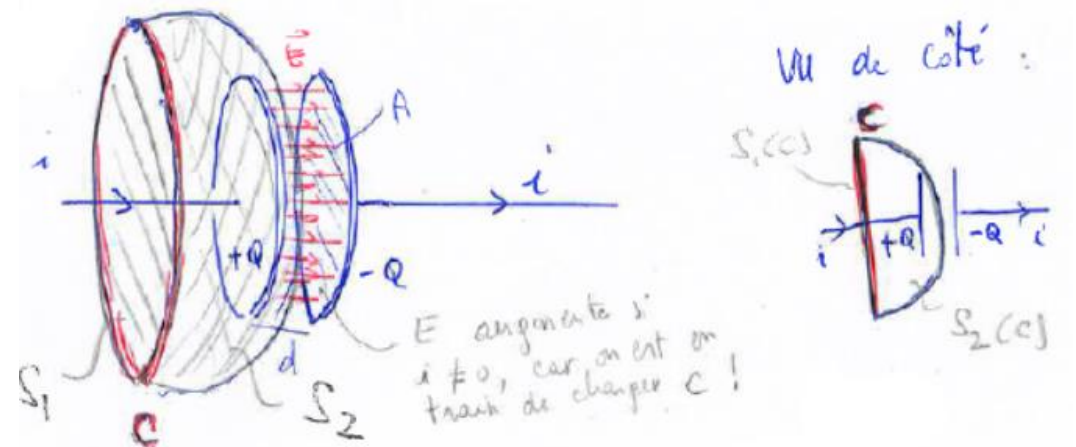 E
A
i
i
+Q
-Q
d
E augmente si
i ≠ 0, car on est en
train de charger C !
S1
C
S2
Vu de côté :
C
S1(C)
i
+Q
-Q
i
S2(C)